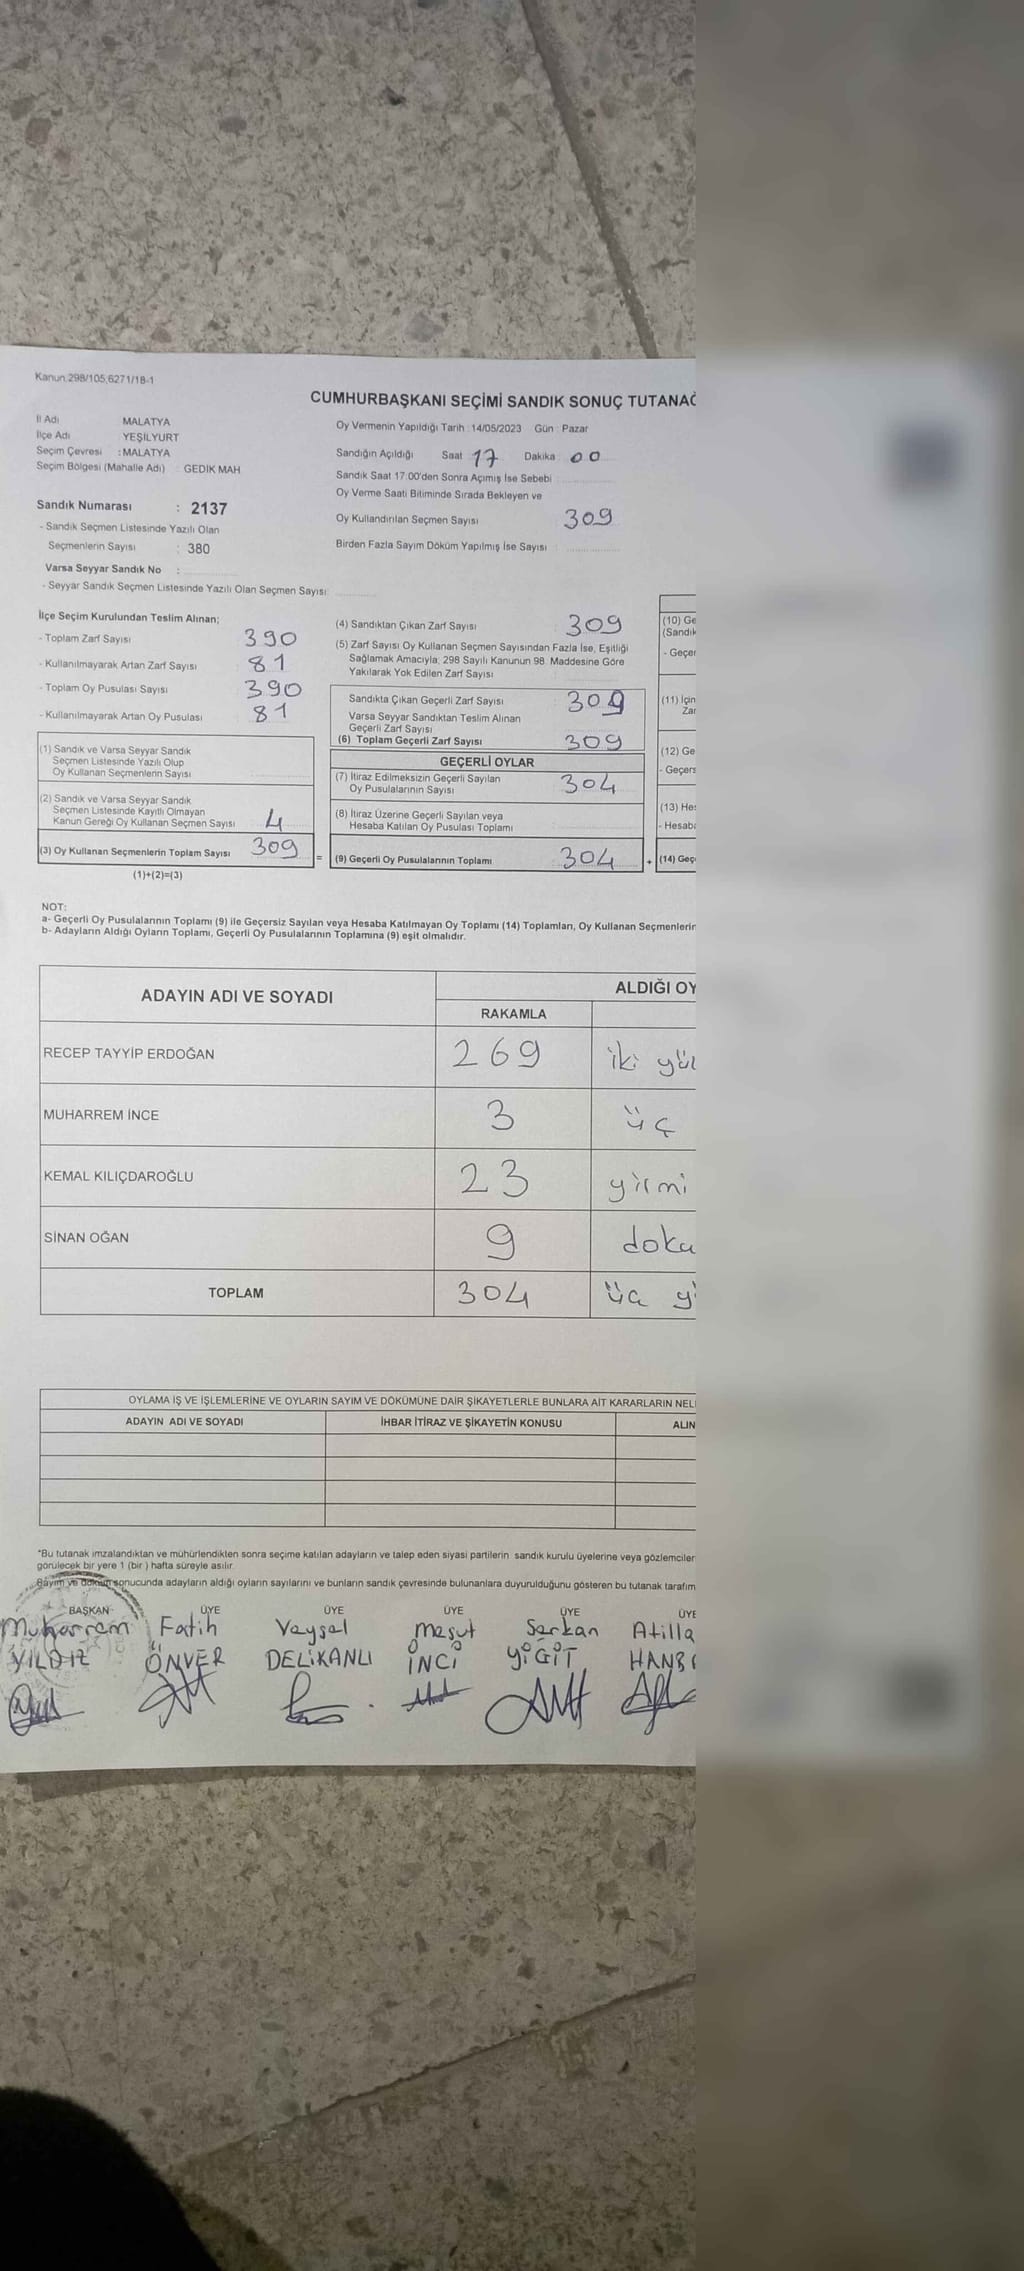 Kanun:298/105;6271/18-1
CUMHURBAŞKANI SEÇİMİ SANDIK SONUÇ TUTANAĞ
İl Adı MALATYA
İlçe Adı YEŞİLYURT
Seçim Çevresi : MALATYA
Seçim Bölgesi (Mahalle Adı) : GEDİK MAH
Oy Vermenin Yapıldığı Tarih : 14/05/2023 Gün : Pazar
Sandığın Açıldığı Saat 17 Dakika 00
Sandık Saat 17:00'den Sonra Açımış İse Sebebi
Oy Verme Saati Bitiminde Sırada Bekleyen ve
Oy Kullandırılan Seçmen Sayısı 309
Birden Fazla Sayım Döküm Yapılmış İse Sayısı
Sandık Numarası : 2137
- Sandık Seçmen Listesinde Yazılı Olan
Seçmenlerin Sayısı : 380
Varsa Seyyar Sandık No :
- Seyyar Sandık Seçmen Listesinde Yazılı Olan Seçmen Sayısı:
İlçe Seçim Kurulundan Teslim Alınan;
- Toplam Zarf Sayısı 390
- Kullanılmayarak Artan Zarf Sayısı 81
- Toplam Oy Pusulası Sayısı 390
- Kullanılmayarak Artan Oy Pusulası 81
(1) Sandık ve Varsa Seyyar Sandık
Seçmen Listesinde Yazılı Olup
Oy Kullanan Seçmenlerin Sayısı
(2) Sandık ve Varsa Seyyar Sandık
Seçmen Listesinde Kayıtlı Olmayan
Kanun Gereği Oy Kullanan Seçmen Sayısı 4
(3) Oy Kullanan Seçmenlerin Toplam Sayısı 309
(1)+(2)=(3)
=
(4) Sandıktan Çıkan Zarf Sayısı 309
(5) Zarf Sayısı Oy Kullanan Seçmen Sayısından Fazla İse, Eşitliği
Sağlamak Amacıyla; 298 Sayılı Kanunun 98. Maddesine Göre
Yakılarak Yok Edilen Zarf Sayısı
Sandıkta Çıkan Geçerli Zarf Sayısı 309
Varsa Seyyar Sandıktan Teslim Alınan
Geçerli Zarf Sayısı
(6) Toplam Geçerli Zarf Sayısı 309
GEÇERLİ OYLAR
(7) İtiraz Edilmeksizin Geçerli Sayılan
Oy Pusulalarının Sayısı 304
(8) İtiraz Üzerine Geçerli Sayılan veya
Hesaba Katılan Oy Pusulası Toplamı
(9) Geçerli Oy Pusulalarının Toplamı 304
+
(10) Ge
(Sandık
- Geçer
(11) İçin
Zar
(12) Ge
- Geçers
(13) Hes
- Hesaba
(14) Geç
NOT:
a- Geçerli Oy Pusulalarının Toplamı (9) ile Geçersiz Sayılan veya Hesaba Katılmayan Oy Toplamı (14) Toplamları, Oy Kullanan Seçmenlerin
b- Adayların Aldığı Oyların Toplamı, Geçerli Oy Pusulalarının Toplamına (9) eşit olmalıdır.
ADAYIN ADI VE SOYADI ALDIĞI OY
RAKAMLA
RECEP TAYYİP ERDOĞAN 269 iki yüz
MUHARREM İNCE 3 üç
KEMAL KILIÇDAROĞLU 23 yirmi
SİNAN OĞAN 9 doku
TOPLAM 304 üç y
OYLAMA İŞ VE İŞLEMLERİNE VE OYLARIN SAYIM VE DÖKÜMÜNE DAİR ŞİKAYETLERLE BUNLARA AİT KARARLARIN NEL
ADAYIN ADI VE SOYADI İHBAR İTİRAZ VE ŞİKAYETİN KONUSU ALIN
*Bu tutanak imzalandıktan ve mühürlendikten sonra seçime katılan adayların ve talep eden siyasi partilerin sandık kurulu üyelerine veya gözlemciler
görülecek bir yere 1 (bir ) hafta süreyle asılır.
Sayım ve döküm sonucunda adayların aldığı oyların sayılarını ve bunların sandık çevresinde bulunanlara duyurulduğunu gösteren bu tutanak tarafım
BAŞKAN ÜYE ÜYE ÜYE ÜYE ÜYE
Muharrem Fatih Veysel Mesut Serkan Atilla
YILDIZ ÖNVER DELİKANLI İNCİ YİĞİT